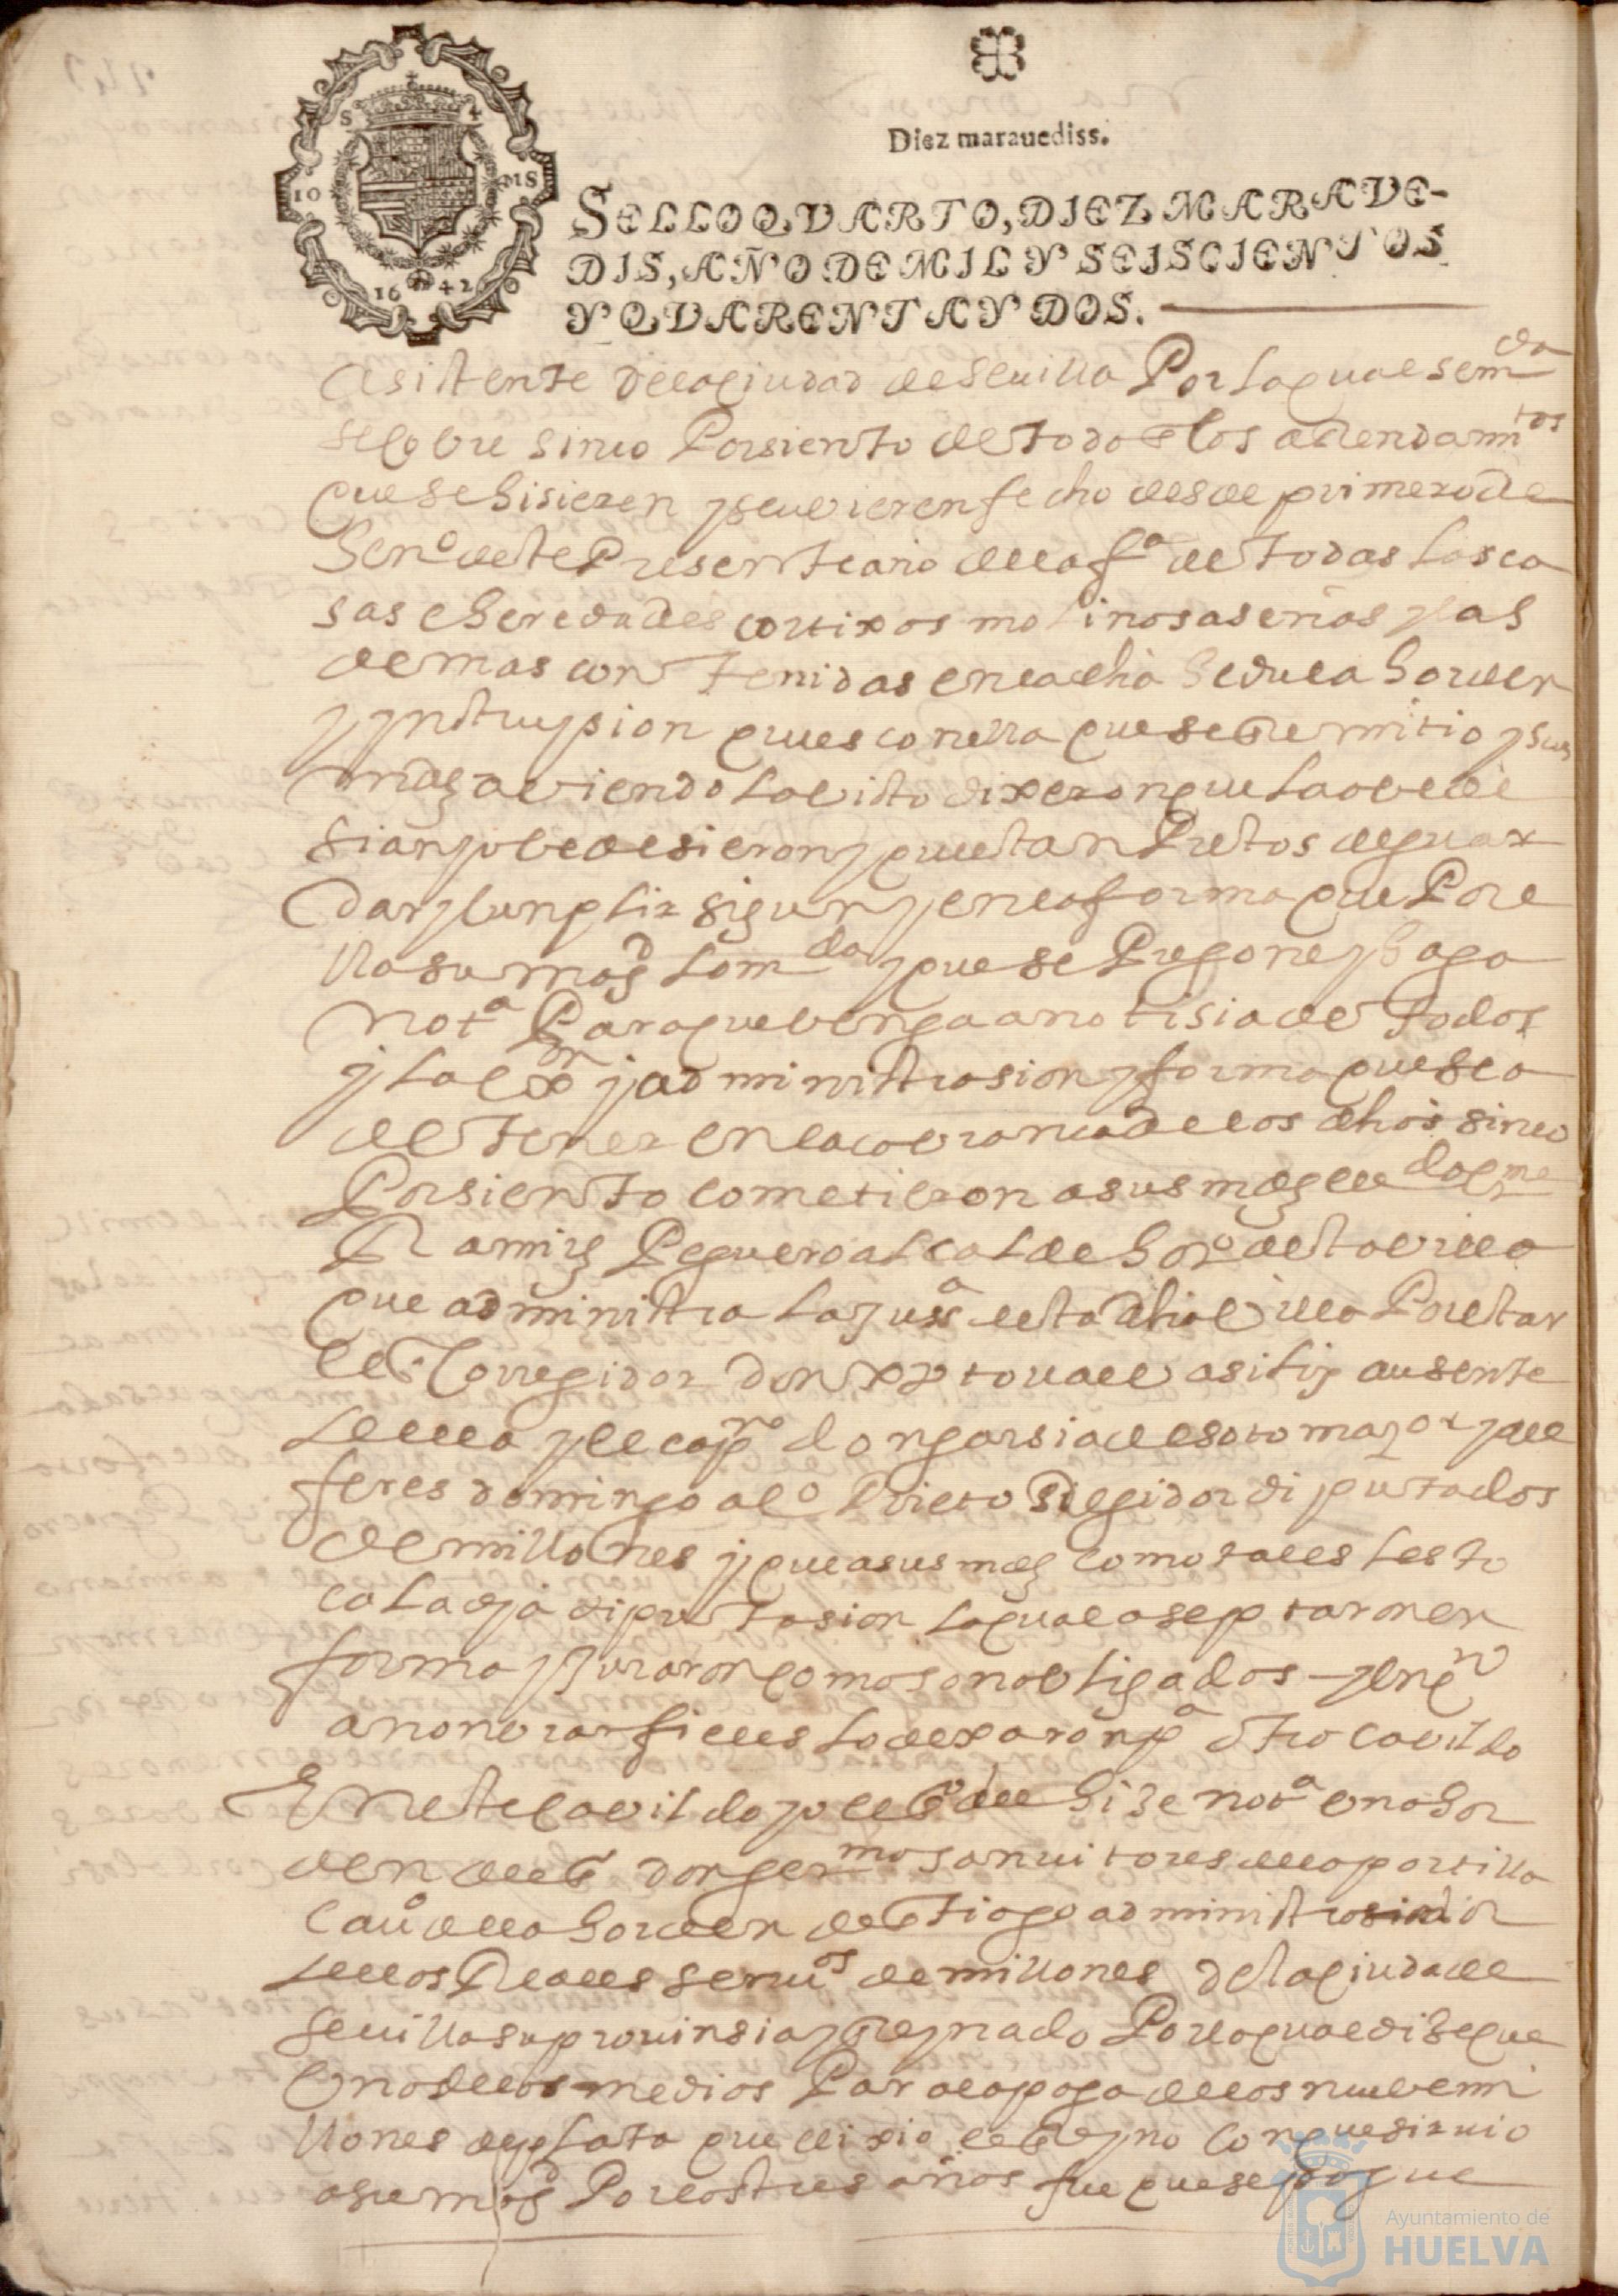 S 4
10 MS
16 42
Diez marauediss.
SELLO QVARTO, DIEZ MARAVE-
DIS, AÑO DE MIL Y SEISCIENTOS
Y QVARENTA Y DOS.
asistente de la çiudad de seuilla Por la qual se mda
se cobre sinco Por siento de todos los arrendamitos
que se hisieren y se uvieren fecho desde primero de
henº deste Presente año de la fª de todas las ca
sas e heredades cortixos molinos aseñas y las
demas contenidas en la dha sedula horden
y ynstruysion ques con ella que se Remitio y sus
mdes aviendola visto dixeron que la obede
sian y obedesieron y questan Prestos de guar
dar y cunplir sigun y en la forma que Por e
lla su magd lo mda y que se Pregone y haga
notª Para que benga a notisia de todos
y la exon y administrasion y forma que sea
de tener en la cobransa de los dhos sinco
Por siento cometieron a sus mdes el
Ramires Peguero alcalde hordº desta villa
que administra la jusª desta dha villa Por estar
el Sr Corregidor don xptoval ausente
della y el capn don garsia de sotomayor y al
feres domingo alº Prieto Regidor diputados
de millones y que a sus mdes como tales les to
ca la dha diputasion la qual aseptaron en
forma y juraron como son obligados y en qto
a nonbrar fieles lo dexaron pª otro cavildo
En este cavildo yo el esno del hize notª una hor
den del Sr don germo sanvitores de la portilla
cauº de la horden de Stiago administrador
de los Reales seruios de millones de la çiudad de
seuilla su provinsia y Reynado Por la qual dise que
uno de los medios Para la paga de los nueve mi
llones de plata que elixio el Reyno con que sirvio
a su magd Por los tres años fue que se pague
Ayuntamiento de
HUELVA